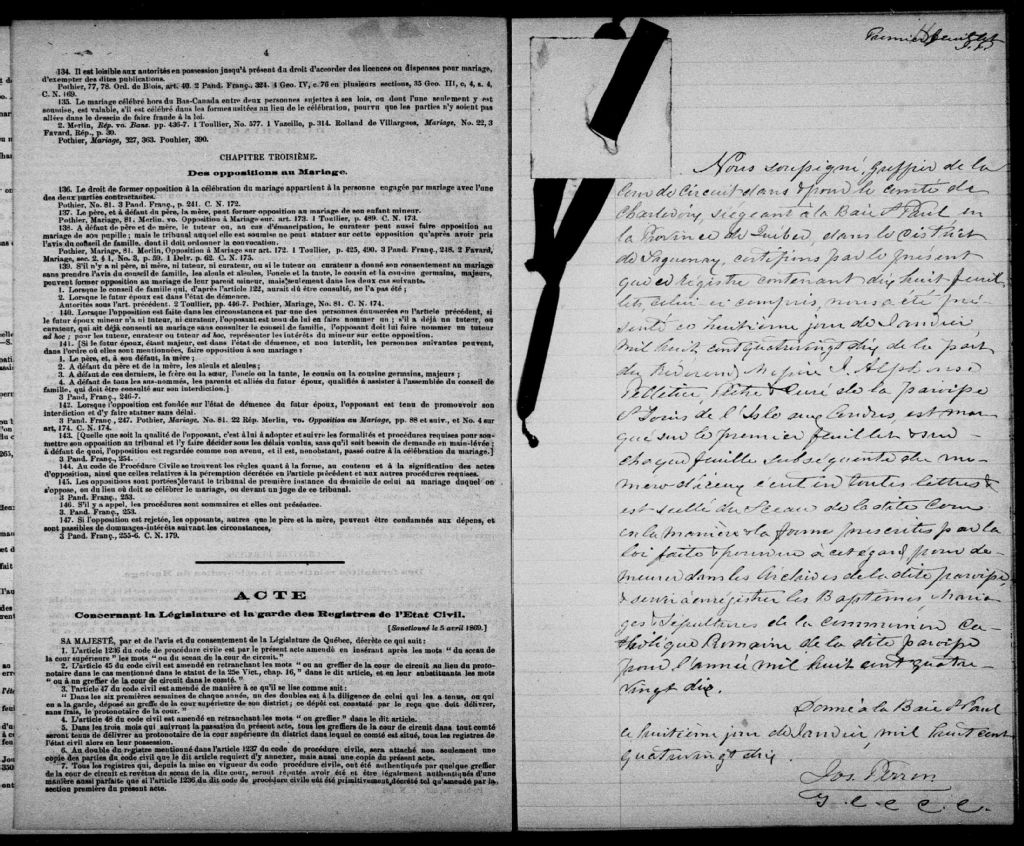 4
134. Il est loisible aux autorités en possession jusqu'à présent du droit d'accorder des licences ou dispenses pour mariage,
d'exempter des dites publications.
Pothier, 77, 78. Ord. de Blois, art. 40. 2 Pand. Franç., 324. 4 Geo. IV, c. 76 en plusieurs sections, 35 Geo. III, c. 4, s. 4,
C. N. 169.
135. Le mariage célébré hors du Bas-Canada entre deux personnes sujettes à ses lois, ou dont l'une seulement y est
soumise, est valable, s'il est célébré dans les formes usitées au lieu de la célébration, pourvu que les parties n'y soient pas
allées dans le dessein de faire fraude à la loi.
2. Merlin, Rép. vo. Bans. pp. 436-7. 1 Toullier, No. 577. 1 Vazeille, p. 314. Rolland de Villargues, Mariage, No. 22, 3
Favard, Rép., p. 30.
Pothier, Mariage, 327, 363. Pouhier, 390.
CHAPITRE TROISIÈME.
Des oppositions au Mariage.
136. Le droit de former opposition à la célébration du mariage appartient à la personne engagée par mariage avec l'une
des deux parties contractantes.
Pothier, No. 81. 3 Pand. Franç., p. 241. C. N. 172.
137. Le père, et à défaut du père, la mère, peut former opposition au mariage de son enfant mineur.
Pothier, Mariage, 81. Merlin. vo. Opposition à Mariage sur. art. 173. 1 Toullier, p. 489. C. N. 173.
138. A défaut de père et de mère, le tuteur ou, au cas d'émancipation, le curateur peut aussi faire opposition au
mariage de son pupille ; mais le tribunal auquel elle est soumise ne peut statuer sur cette opposition qu'après avoir pris
l'avis du conseil de famille, dont il doit ordonner la convocation.
Pothier, Mariage, 81. Merlin, Opposition à Mariage sur art. 172. 1 Toullier, p. 425, 490. 3 Pand. Franç., 248. 2 Favard,
Mariage, sec. 2. § 1, No. 3, p. 59. 1 Delv. p. 62. C. N. 175.
139. S'il n'y a ni père, ni mère, ni tuteur, ni curateur, ou si le tuteur ou curateur a donné son consentement au mariage
sans prendre l'avis du conseil de famille, les aïeuls et aïeules, l'oncle et la tante, le cousin et la cousine germains, majeurs,
peuvent former opposition au mariage de leur parent mineur, mais seulement dans les deux cas suivants.
1. Lorsque le conseil de famille qui, d'après l'article 122, aurait dû être consulté, ne l'a pas été ;
2. Lorsque le futur époux est dans l'état de démence.
Autorités sous l'art. précédent. 2 Toullier, pp. 446-7. Pothier, Mariage, No. 81. C. N. 174.
140. Lorsque l'opposition est faite dans les circonstances et par une des personnes énumérées en l'article précédent, si
le futur époux mineur n'a ni tuteur, ni curateur, l'opposant est tenu de lui en faire nommer un ; s'il a déjà un tuteur, ou
curateur, qui ait déjà consenti au mariage sans consulter le conseil de famille, l'opposant doit lui faire nommer un tuteur
ad hoc ; pour les tuteur, curateur ou tuteur ad hoc, représenter les intérêts du mineur sur cette opposition.
141. [Si le futur époux, étant majeur, est dans l'état de démence, et non interdit, les personnes suivantes peuvent,
dans l'ordre où elles sont mentionnées, faire opposition à son mariage :
1. Le père, et, à son défaut, la mère ;
2. A défaut du père et de la mère, les aïeuls et aïeules ;
3. A défaut de ces derniers, le frère ou la sœur, l'oncle ou la tante, le cousin ou la cousine germains, majeurs ;
4. A défaut de tous les sus-nommés, les parents et alliés du futur époux, qualifiés à assister à l'assemblée du conseil de
famille, qui doit être consulté sur son interdiction.]
3 Pand. Franç., 246-7.
142. Lorsque l'opposition est fondée sur l'état de démence du futur époux, l'opposant est tenu de promouvoir son
interdiction et d'y faire statuer sans délai.
3 Pand. Franç., 247. Pothier, Mariage, No. 81. 22 Rép. Merlin, vo. Opposition au Mariage, pp. 88 et suiv., et No. 4 sur
art, 174. C. N. 174.
143. [Quelle que soit la qualité de l'opposant, c'est à lui à adopter et suivre les formalités et procédures requises pour sou-
mettre son opposition au tribunal et l'y faire décider dans les délais voulus, sans qu'il soit besoin de demande en main-levée ;
à défaut de quoi, l'opposition est regardée comme non avenue, et il est, nonobstant, passé outre à la célébration du mariage.]
3 Pand. Franç., 254.
144. Au code de Procédure Civile se trouvent les règles quant à la forme, au contenu et à la signification des actes
d'opposition, ainsi que celles relatives à la péremption décrétée en l'article précédent et aux autres procédures requises.
145. Les oppositions sont portées devant le tribunal de première instance du domicile de celui au mariage duquel on
s'oppose, ou du lieu où doit se célébrer le mariage, ou devant un juge de ce tribunal.
3 Pand. Franç., 253.
146. S'il y a appel, les procédures sont sommaires et elles ont préséance.
3 Pand. Franç., 253.
147. Si l'opposition est rejetée, les opposants, autres que le père et la mère, peuvent être condamnés aux dépens, et
sont passibles de dommages-intérêts suivant les circonstances,
3 Pand. Franç., 255-6. C. N. 179.
ACTE
Concernant la Législature et la garde des Registres de l'Etat Civil.
[Sanctionné le 5 avril 1869.]
SA MAJESTÉ, par et de l'avis et du consentement de la Législature de Québec, décrète ce qui suit:
1. L'article 1236 du code de procédure civile est par le présent acte amendé en insérant après les mots " du sceau de
la cour supérieure " les mots " ou du sceau de la cour de circuit."
2. L'article 45 du code civil est amendé en retranchant les mots " ou au greffier de la cour de circuit au lieu du proto-
notaire dans le cas mentionné dans le statut de la 25e Vict., chap. 16, " dans le dit article, et en leur substituants les mots
" ou à un greffier de la cour de circuit dans le comté. "
3. l'article 47 du code civil est amendé de manière à ce qu'il se lise comme suit:
" Dans les six premières semaines de chaque année, un des doubles est à la diligence de celui qui les a tenus, ou qui
en a la garde, déposé au greffe de la cour supérieure de son district ; ce dépôt est constaté par le reçu que doit délivrer,
sans frais, le protonotaire de la cour. "
4. L'article 48 du code civil est amendé en retranchant les mots " on greffier " dans le dit article.
5. Dans les trois mois qui suivront la passation du présent acte, tous les greffiers de la cour de circuit dans tout comté
seront tenus de délivrer au protonotaire de la cour supérieure du district dans lequel ce comté est situé, tous les registres de
l'état civil alors en leur possession.
6. Au double du registre mentionné dans l'article 1237 du code de procédure civile, sera attaché non seulement une
copie des parties du code civil que le dit article requiert d'y annexer, mais aussi une copie du présent acte.
7. Tous les registres qui, depuis la mise en vigueur du code procédure civile, ont été authentiqués par quelque greffier
de la cour de circuit et revêtus du sceau de la dite cour, seront réputés avoir été et être légalement authentiqués d'une
manière aussi parfaite que si l'article 1236 du dit code de procédure civile eut été primitivement décrété tel qu'amendé par la
section première du présent acte.
Premier feuillet
Nous soussigné, Greffier de la
Cour de Circuit dans & pour le comté de
Charlevoix, siégeant à la Baie St Paul en
la Province de Québec dans le District
de Saguenay, certifions par le présent
que ce régistre contenant dix huit feuil
lets celui ci compris, nous a été pré-
senté ce huitième jour de Janvier,
mil huit cent quatrevingt dix de la part
du Révérend Messire J. Alphonse
Pelletier, Ptre & Curé de la paroisse
St Louis de l'Isle aux Coudres, est mar-
qué sur le premier feuillet & sur
chaque feuille subséquente du nu-
mero d'iceux écrit en toutes lettres &
est scellé du Sceau de la dite Cour
en la manière & la forme prescrites par la
loi faite & pourvue à cet égard pour de-
meurer dans les Archives de la dite paroisse,
& servir à enrégistrer les Baptêmes, Maria-
ges & Sépultures de la communion Ca-
tholique Romaine de la dite paroisse
pour l'année mil huit cent quatre-
vingt dix.
Donné à la Baie St Paul
le huitième jour de Janvier, mil huit cent
quatrevingt dix.
Jos. Perron
G. C. C. C.